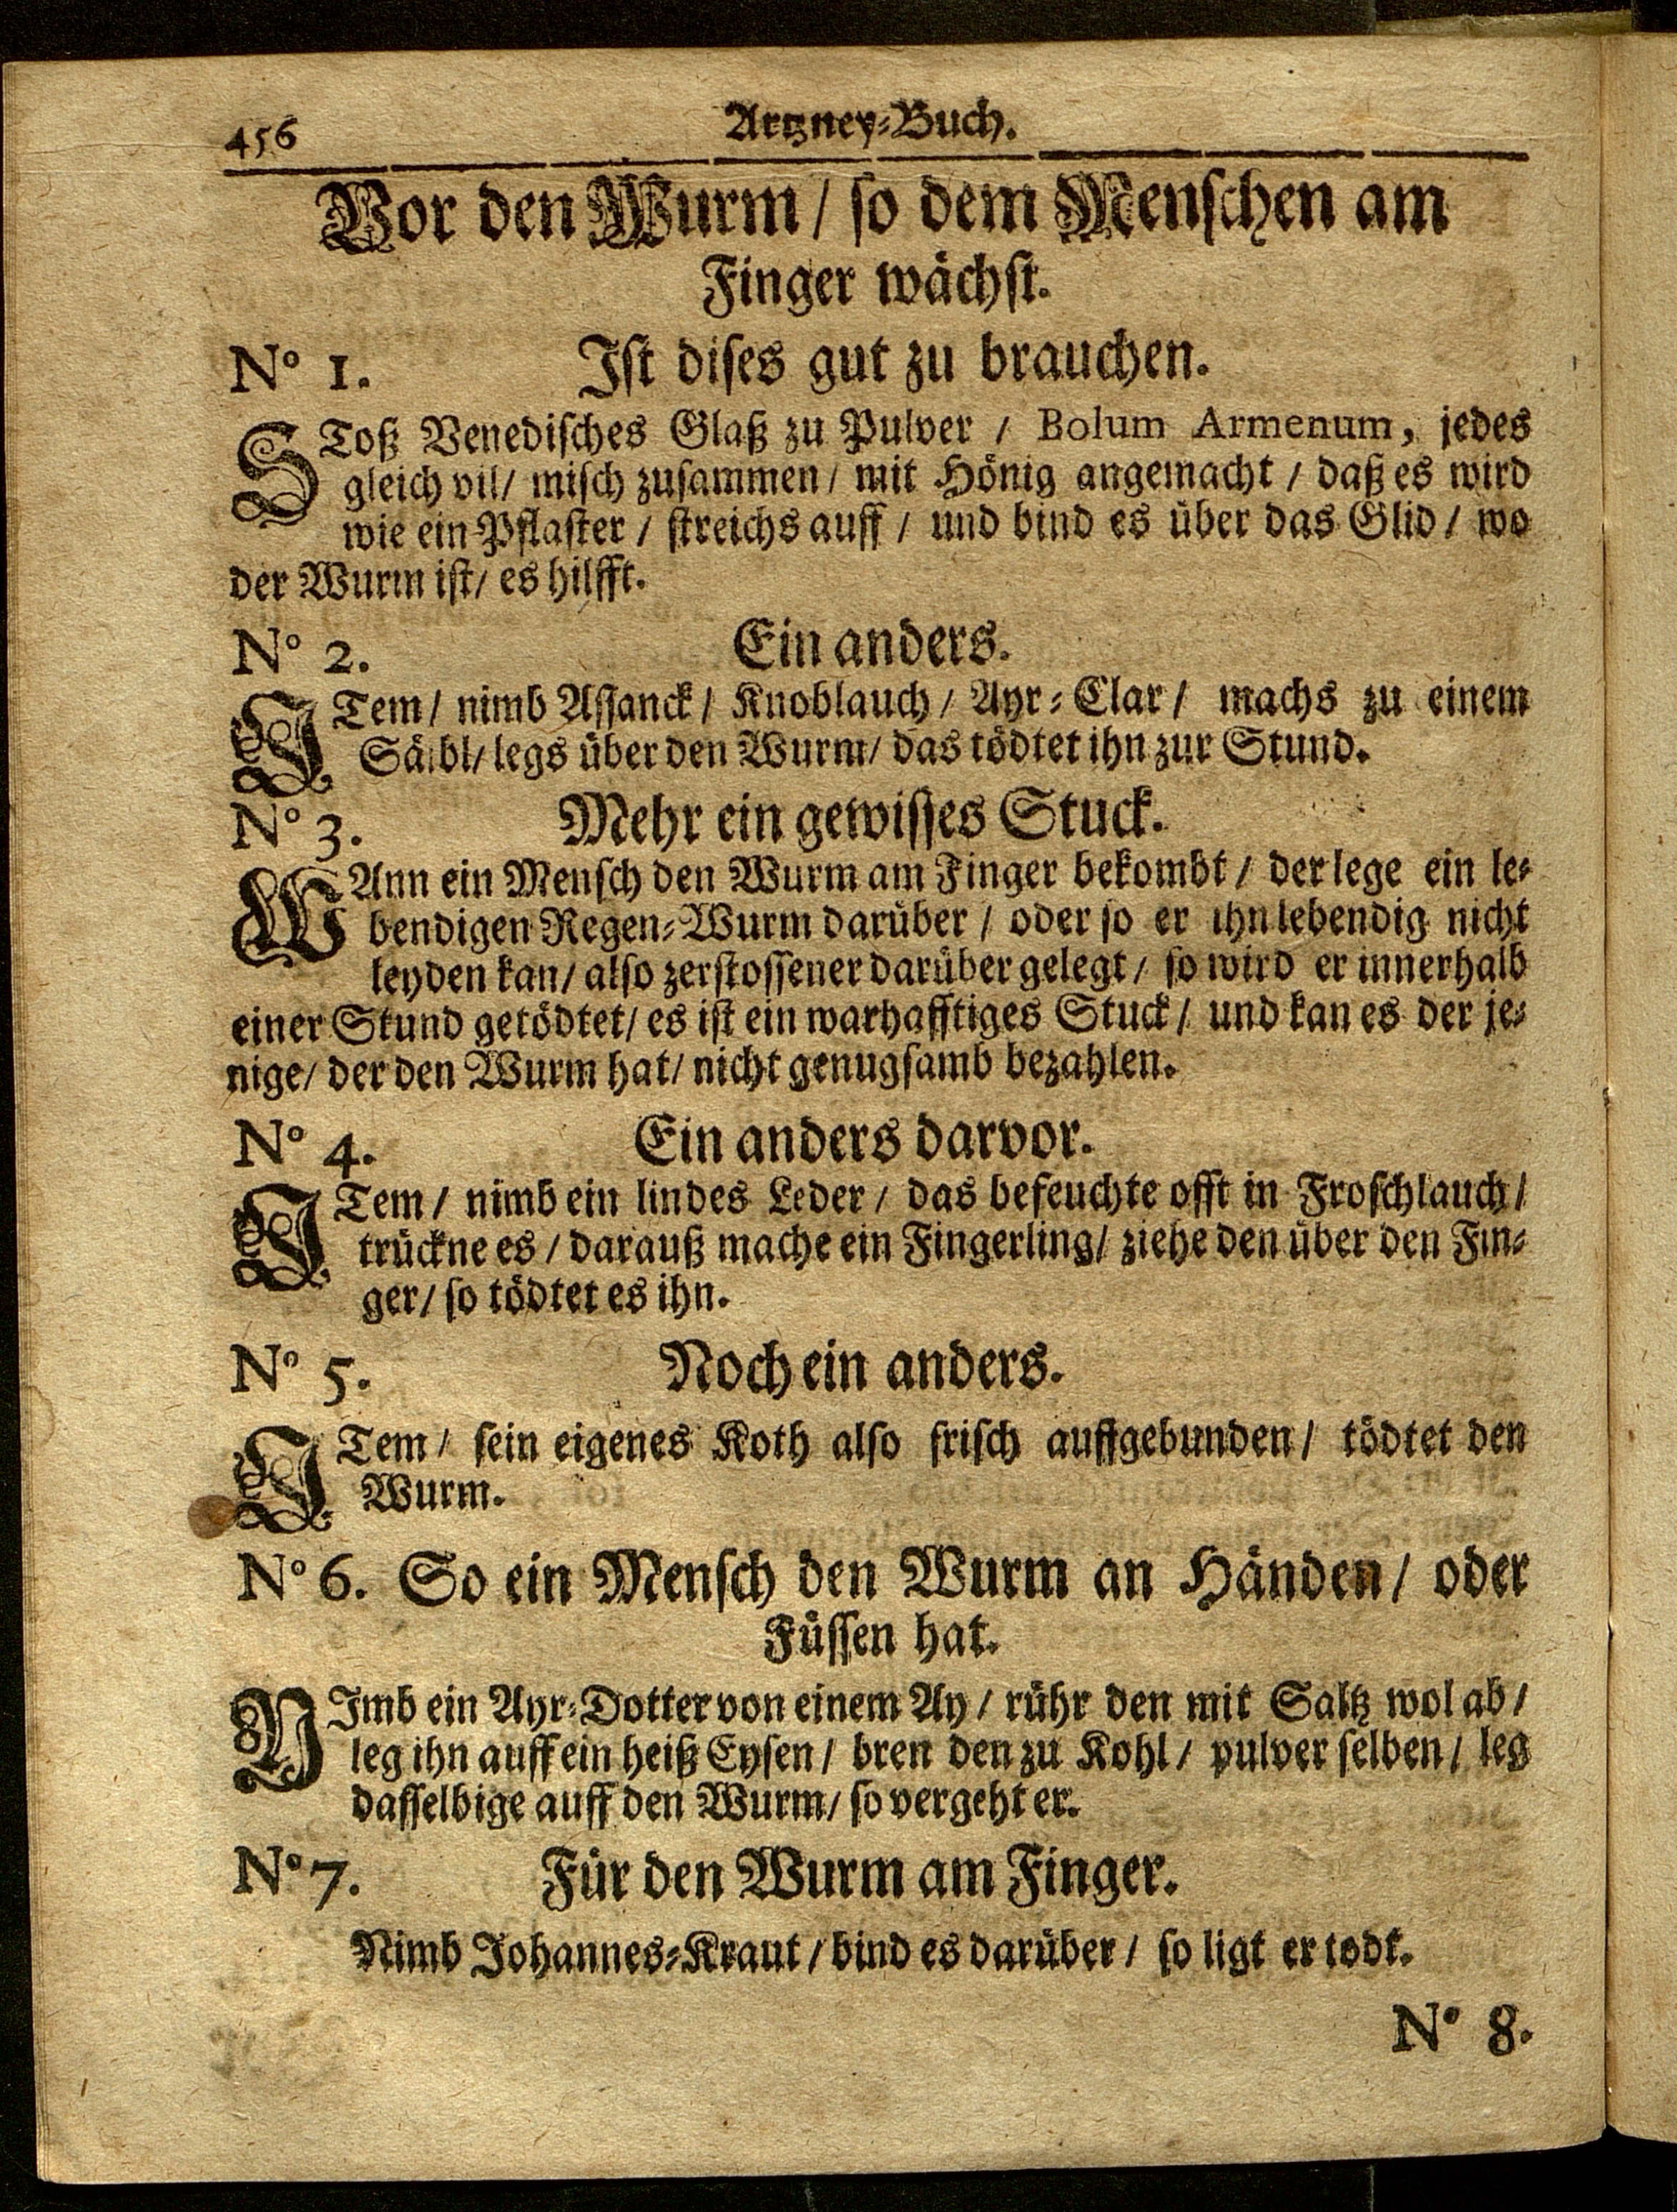 456 Artzney-Buch.
Vor den Wurm / so dem Menschen am
Finger wächst.
N° 1. Ist dises gut zu brauchen.
SToß Venedisches Glaß zu Pulver / Bolum Armenum, jedes
gleich vil / misch zusammen / mit Hönig angemacht / daß es wird
wie ein Pflaster / streichs auff / und bind es über das Glid / wo
der Wurm ist / es hilfft.
N° 2. Ein anders.
ITem / nimb Assanck / Knoblauch / Ayr-Clar / machs zu einem
Säibl / legs über den Wurm / das tödtet ihn zur Stund.
N° 3. Mehr ein gewisses Stuck.
WAnn ein Mensch den Wurm am Finger bekombt / der lege ein le-
bendigen Regen-Wurm darüber / oder so er ihn lebendig nicht
leyden kan / also zerstossener darüber gelegt / so wird er innerhalb
einer Stund getödtet / es ist ein warhafftiges Stuck / und kan es der je-
nige / der den Wurm hat / nicht genugsamb bezahlen.
N° 4. Ein anders darvor.
ITem / nimb ein lindes Leder / das befeuchte offt in Froschlauch /
trückne es / darauß mache ein Fingerling / ziehe den über den Fin-
ger / so tödtet es ihn.
N° 5. Noch ein anders.
ITem / sein eigenes Koth also frisch auffgebunden / tödtet den
Wurm.
N° 6. So ein Mensch den Wurm an Händen / oder
Füssen hat.
NImb ein Ayr-Dotter von einem Ay / rühr den mit Saltz wol ab /
leg ihn auff ein heiß Eysen / bren den zu Kohl / pulver selben / leg
dasselbige auff den Wurm / so vergeht er.
N° 7. Für den Wurm am Finger.
Nimb Johannes-Kraut / bind es darüber / so ligt er todt.
N° 8.